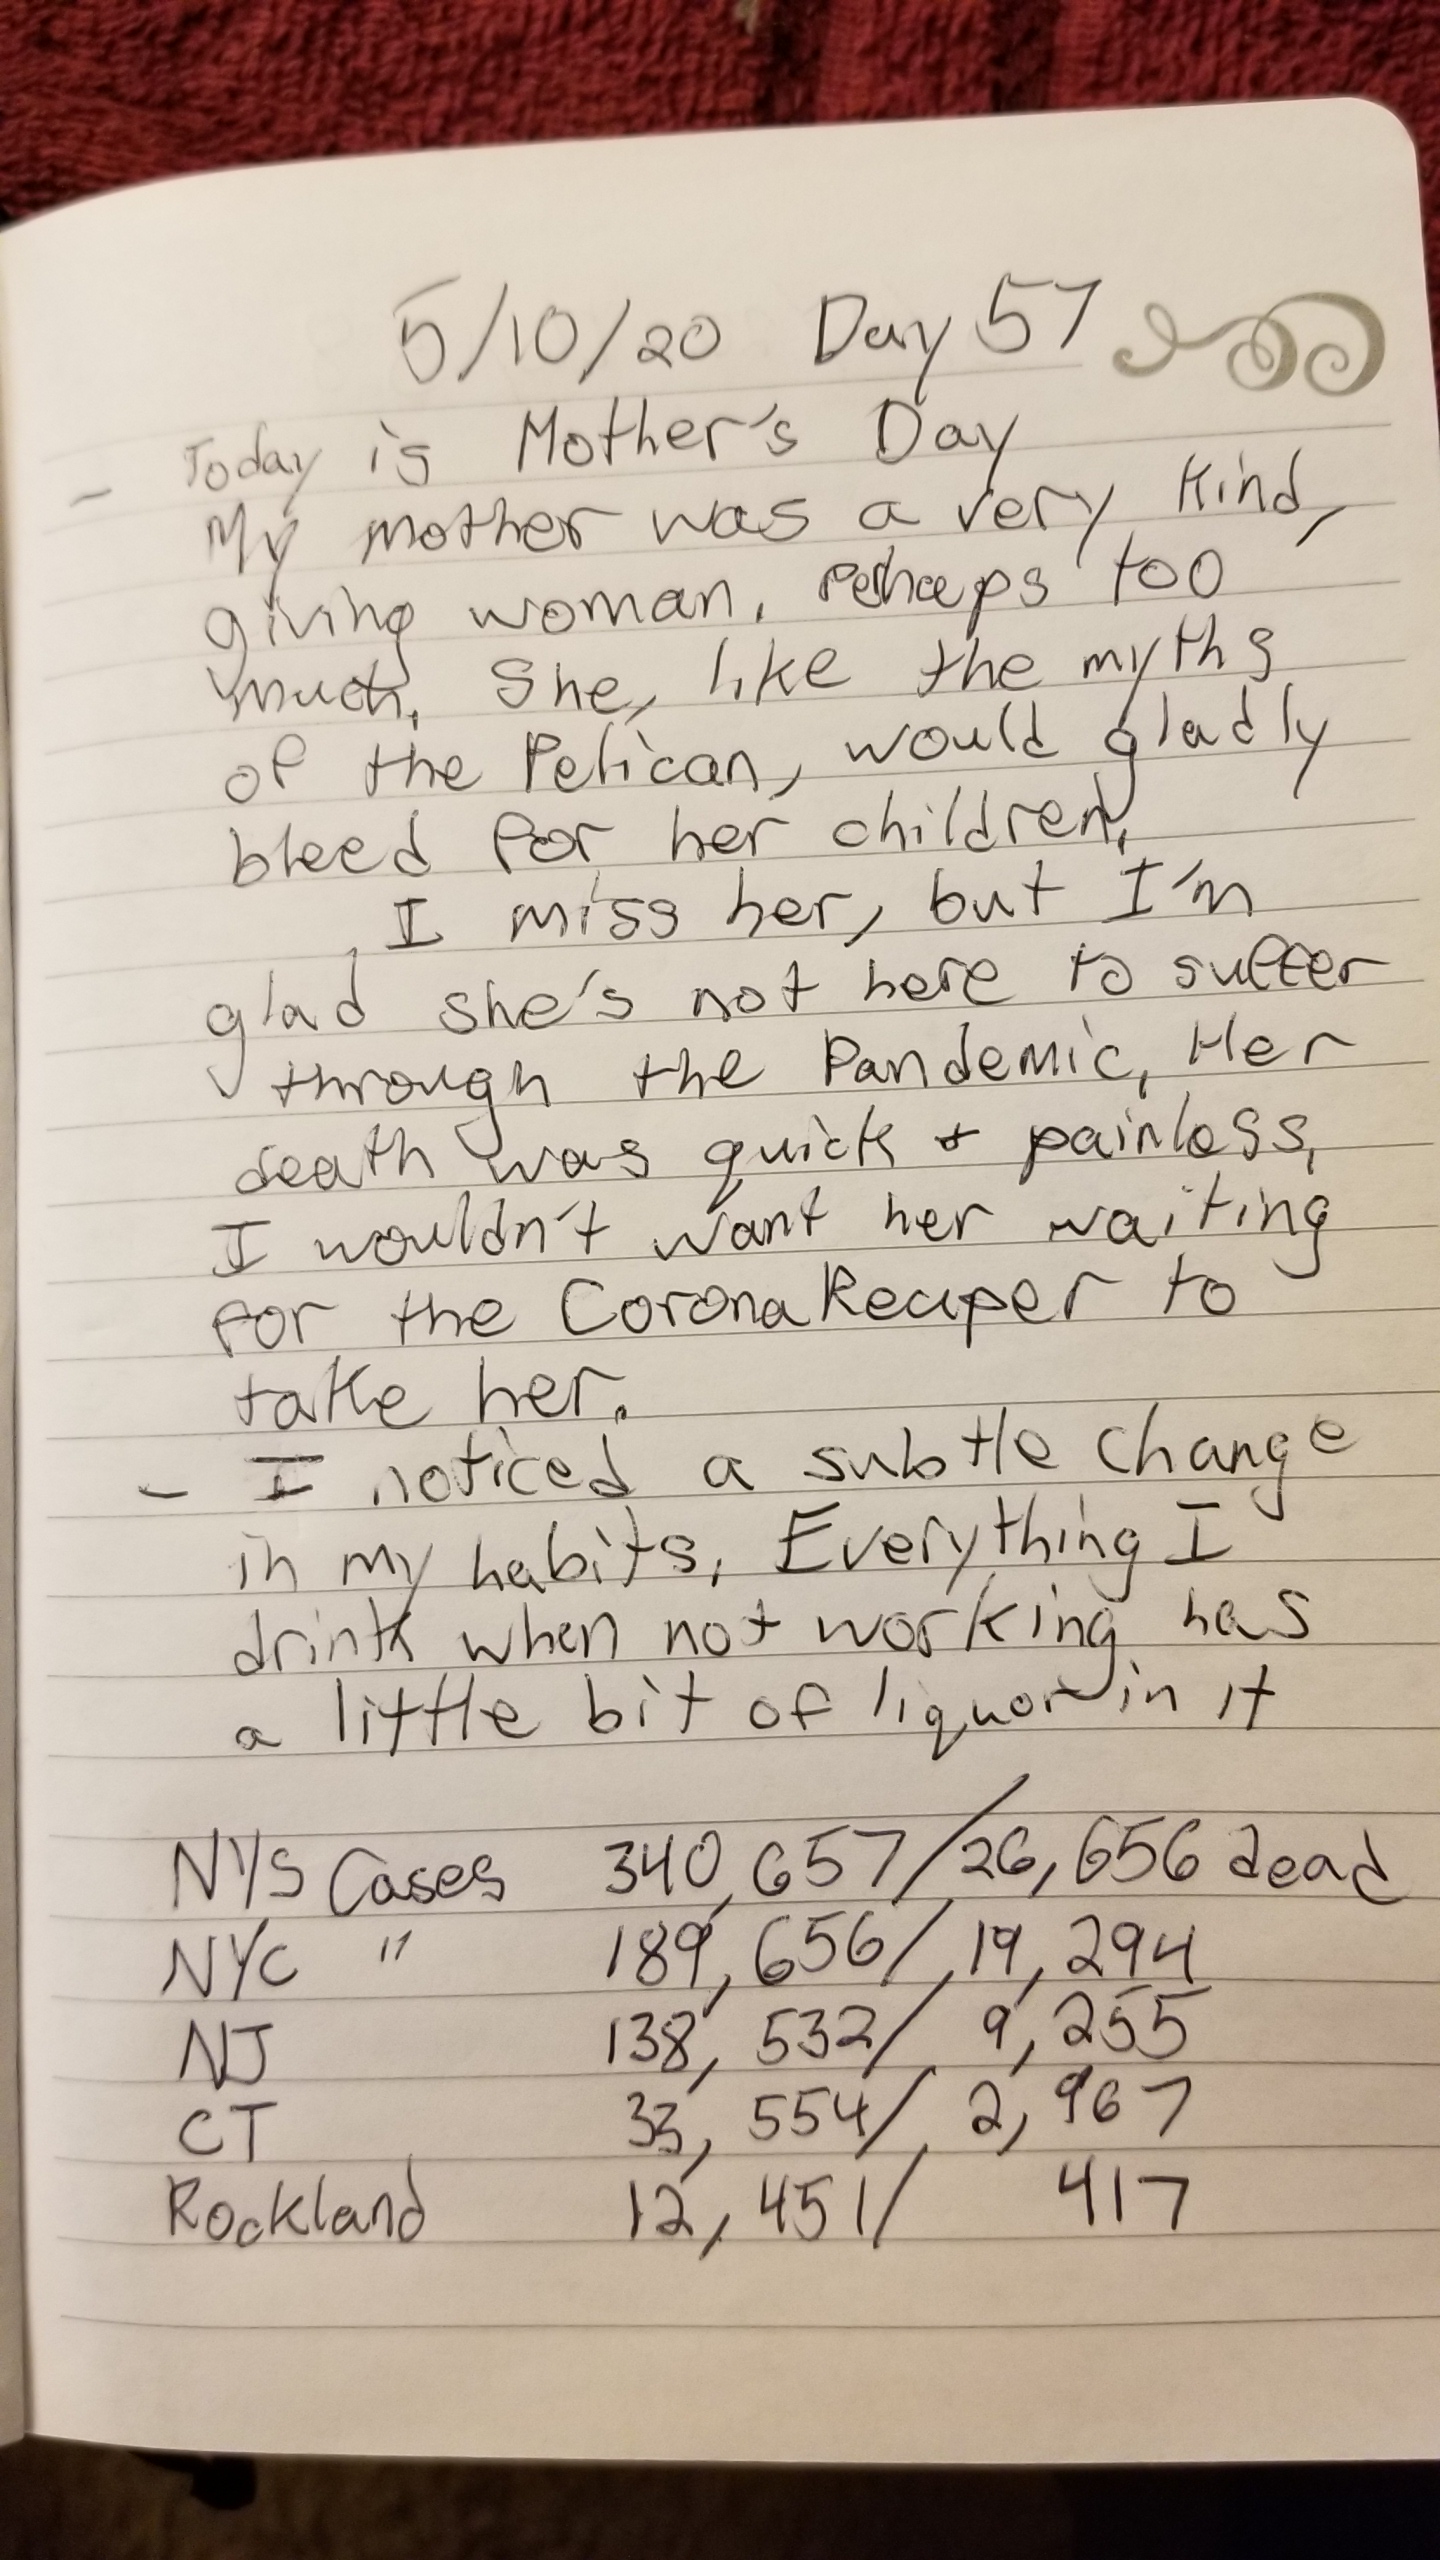 5/10/20 Day 57
- Today is Mother's Day
My mother was a very kind,
giving woman. Perhaps too
much. She, like the myths
of the Pelican, would gladly
bleed for her children.
I miss her, but I'm
glad she's not here to suffer
through the Pandemic. Her
death was quick + painless.
I wouldn't want her waiting
for the Corona Reaper to
take her.
- I noticed a subtle change
in my habits. Everything I
drink when not working has
a little bit of liquor in it
NYS Cases 340,657/26,656 dead
NYC " 189,656/19,294
NJ 138,532/9,255
CT 33,554/2,967
Rockland 12,451/417